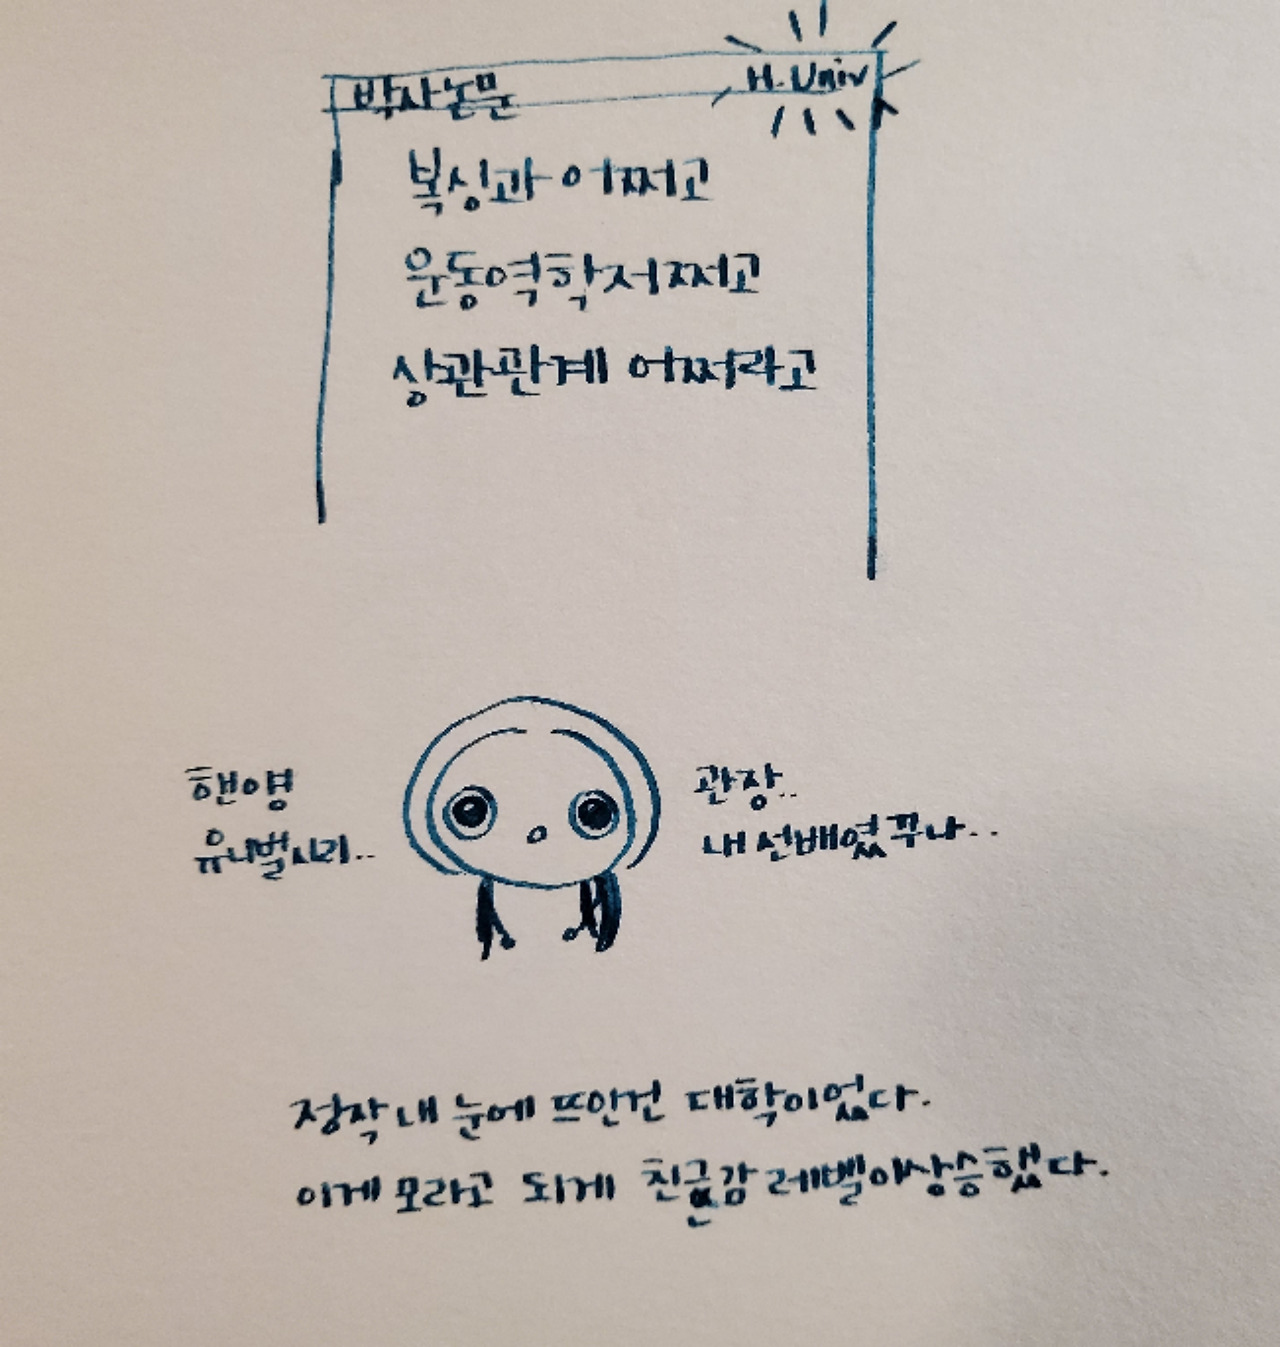 박사논문
H. Univ
복싱과 어쩌고
운동역학 저쩌고
상관관계 어쩌라고
핸영
유니벌시리..
관장..
내 선배였꾸나..
정작 내 눈에 뜨인건 대학이었다.
이게 모라고 되게 친근감 레벨이 상승했다.